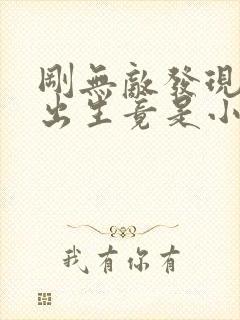 剛無敵發現
出生竟是小
我有你有